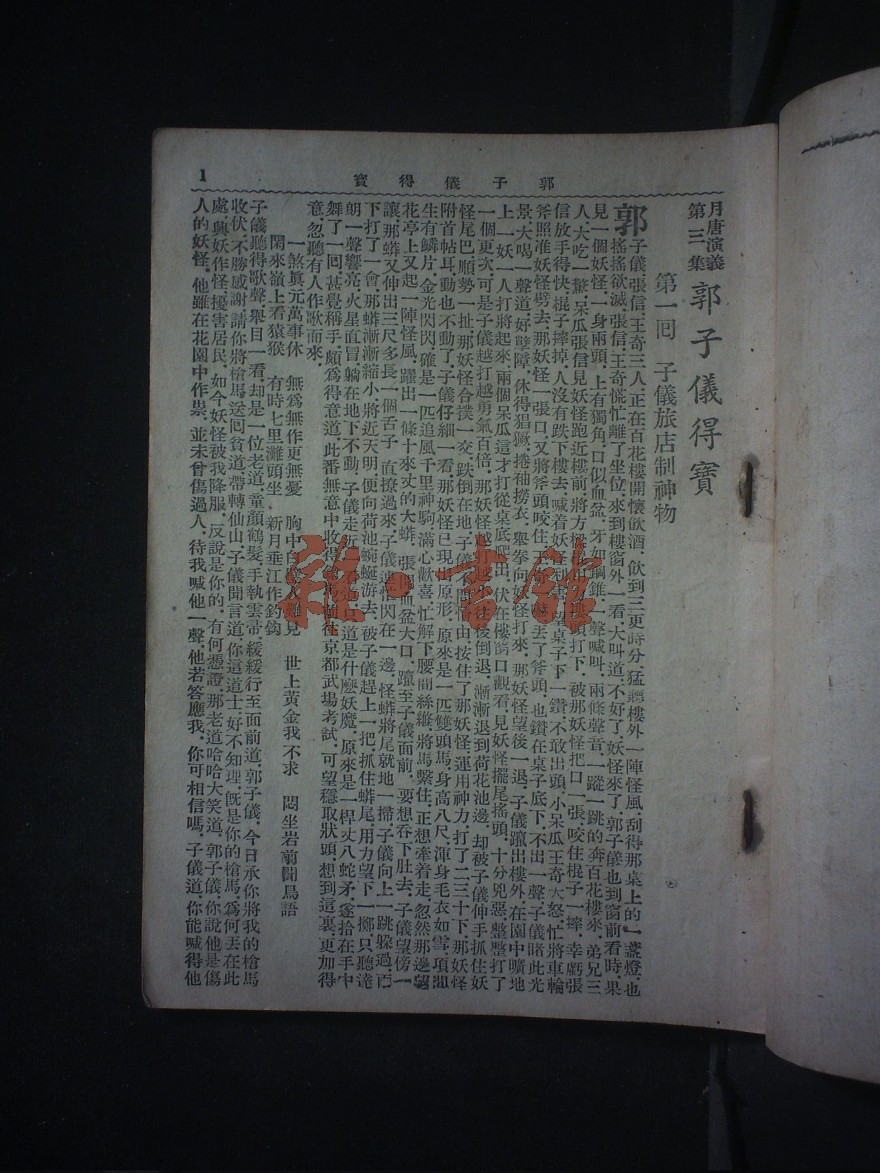 郭子儀得寶
1
月唐演義
第三集
郭子儀得寶
第一回 子儀旅店制神物
郭子儀張信王奇三人正在百花樓開懷飲酒飲到三更時分猛聽樓外一陣怪風刮得那桌上的一盞燈也
搖搖欲滅張信王奇慌忙離了坐位來到樓窗外一看大叫道不好了妖怪來了郭子儀也到窗前看時果
見一個妖怪一身兩頭上有獨角口似血盆牙如鋼錐一聲喊叫兩條聲音一蹤一跳的奔百花樓來弟兄三
人大吃一驚呆瓜張信見妖怪跑近樓前將方樑打下被那妖怪把口一張咬住棍子一摔幸虧張
信放手得快棍子摔掉人沒有跌下樓去喊着妖怪望桌子下一鑽不敢出頭小呆瓜王奇大怒忙將車輪
斧照准妖怪劈去那妖怪一張口又將斧頭咬住王奇去了斧頭也鑽在桌子底下不出一聲子儀睹此光
景大喝一聲道好孽障休得猖獗捲袖撈衣舉拳向妖怪打來那妖怪望後一退子儀躥出樓外在園中曠地
上一妖一人打將起來兩個呆瓜這才打從桌底爬出伏在樓窗口觀看見妖怪擺尾搖頭十分兇惡整整打了
一個更次可是子儀越打越勇氣百倍那妖怪越打越小往後倒退漸漸退到荷花池邊却被子儀伸手抓住妖
怪尾巴順勢一扯那妖怪合撲一交跌倒在地子儀不由按住了那妖怪運用神力打了二三十下那妖怪
附首帖耳動也不動了子儀仔細一看那妖怪已現原形原來是一匹雙頭馬身高八尺渾身毛衣如雪項間
生有鱗片金光閃閃確是一匹追風千里神駒滿心歡喜忙解下腰間絲縧將馬繫住正想牽着走忽然那邊望
花亭上又起一陣怪風躍出一條十來丈的大蟒張開血盆大口躥至子儀面前要想吞下肚去子儀望傍一
讓那蟒又伸出三尺多長一個舌子直撩過來子儀連忙閃在一邊怪蟒將尾就地一掃子儀向上一跳躲過
下打了一會那蟒漸漸縮小將近天明便向荷池蜿蜒游去被子儀趕上一把抓住蟒尾用力望下一擲只聽達
朗一聲響亮火星直冒躺在地下不動子儀走近一看只道是什麼妖魔原來是一桿丈八蛇矛遂拾在手中
舞了一回甚覺稱手頗爲得意道此番無意中收得前往京都武場考試可望穩取狀頭想到這裏更加得
意忽聽有人作歌而來
一煞眞元萬事休 無爲無作更無憂 胸中白見 世上黃金我不求 悶坐岩前鬪鳥語
閑來嶺上看猿猴 有時七里灘頭坐 新月垂江作釣鈎
子儀聽得歌聲舉目一看却是一位老道童顏鶴髮手執雲帚緩緩行至面前道郭子儀今日承你將我的槍馬
收伏不勝感謝請你將槍馬送回貧道帶轉仙山子儀聞言道你這道士好不知理旣是你的槍馬爲何丟在此
處興妖作怪擾害居民如今妖怪被我降服反說是你的有何憑證那老道哈哈大笑道郭子儀你說他是傷
人的妖怪他雖在花園中作祟並未曾傷過人待我喊他一聲他若答應我你可相信嗎子儀道你能喊得他
雜·書館